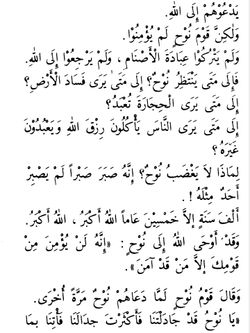 يَدْعُوهُمْ إِلَى اللهِ.
وَلٰكِنَّ قَوْمَ نُوْحٍ لَمْ يُؤْمِنُوْا.
وَلَمْ يَتْرُكُوْا عِبَادَةَ الْأَصْنَامِ ، وَلَمْ يَرْجِعُوْا إِلَى اللهِ.
فَإِلَى مَتَى يَنْتَظِرُ نُوْحٌ؟ إِلَى مَتَى يَرَى فَسَادَ الْأَرْضِ؟
إِلَى مَتَى يَرَى الْحِجَارَةَ تُعْبَدُ؟
إِلَى مَتَى يَرَى النَّاسَ يَأْكُلُوْنَ رِزْقَ اللهِ وَيَعْبُدُوْنَ
غَيْرَهُ؟
لِمَاذَا لَا يَغْضَبُ نُوْحٌ؟ إِنَّهُ صَبَرَ صَبْرًا لَمْ يَصْبِرْ
أَحَدٌ مِثْلَهُ !
أَلْفَ سَنَةٍ إِلاَّ خَمْسِيْنَ عَاماً اللهُ أَكْبَرُ . اللهُ أَكْبَرُ.
وَقَدْ أَوْحَى اللهُ إِلَى نُوْحٍ : «إِنَّهُ لَنْ يُؤْمِنَ مِنْ
قَوْمِكَ إِلاَّ مَنْ قَدْ آمَنَ».
وَقَالَ قَوْمُ نُوْحٍ لَمَّا دَعَاهُمْ نُوْحٌ مَرَّةً أُخْرَى.
«يَا نُوْحُ قَدْ جَادَلْتَنَا فَأَكْثَرْتَ جِدَالَنَا فَأْتِنَا بِمَا